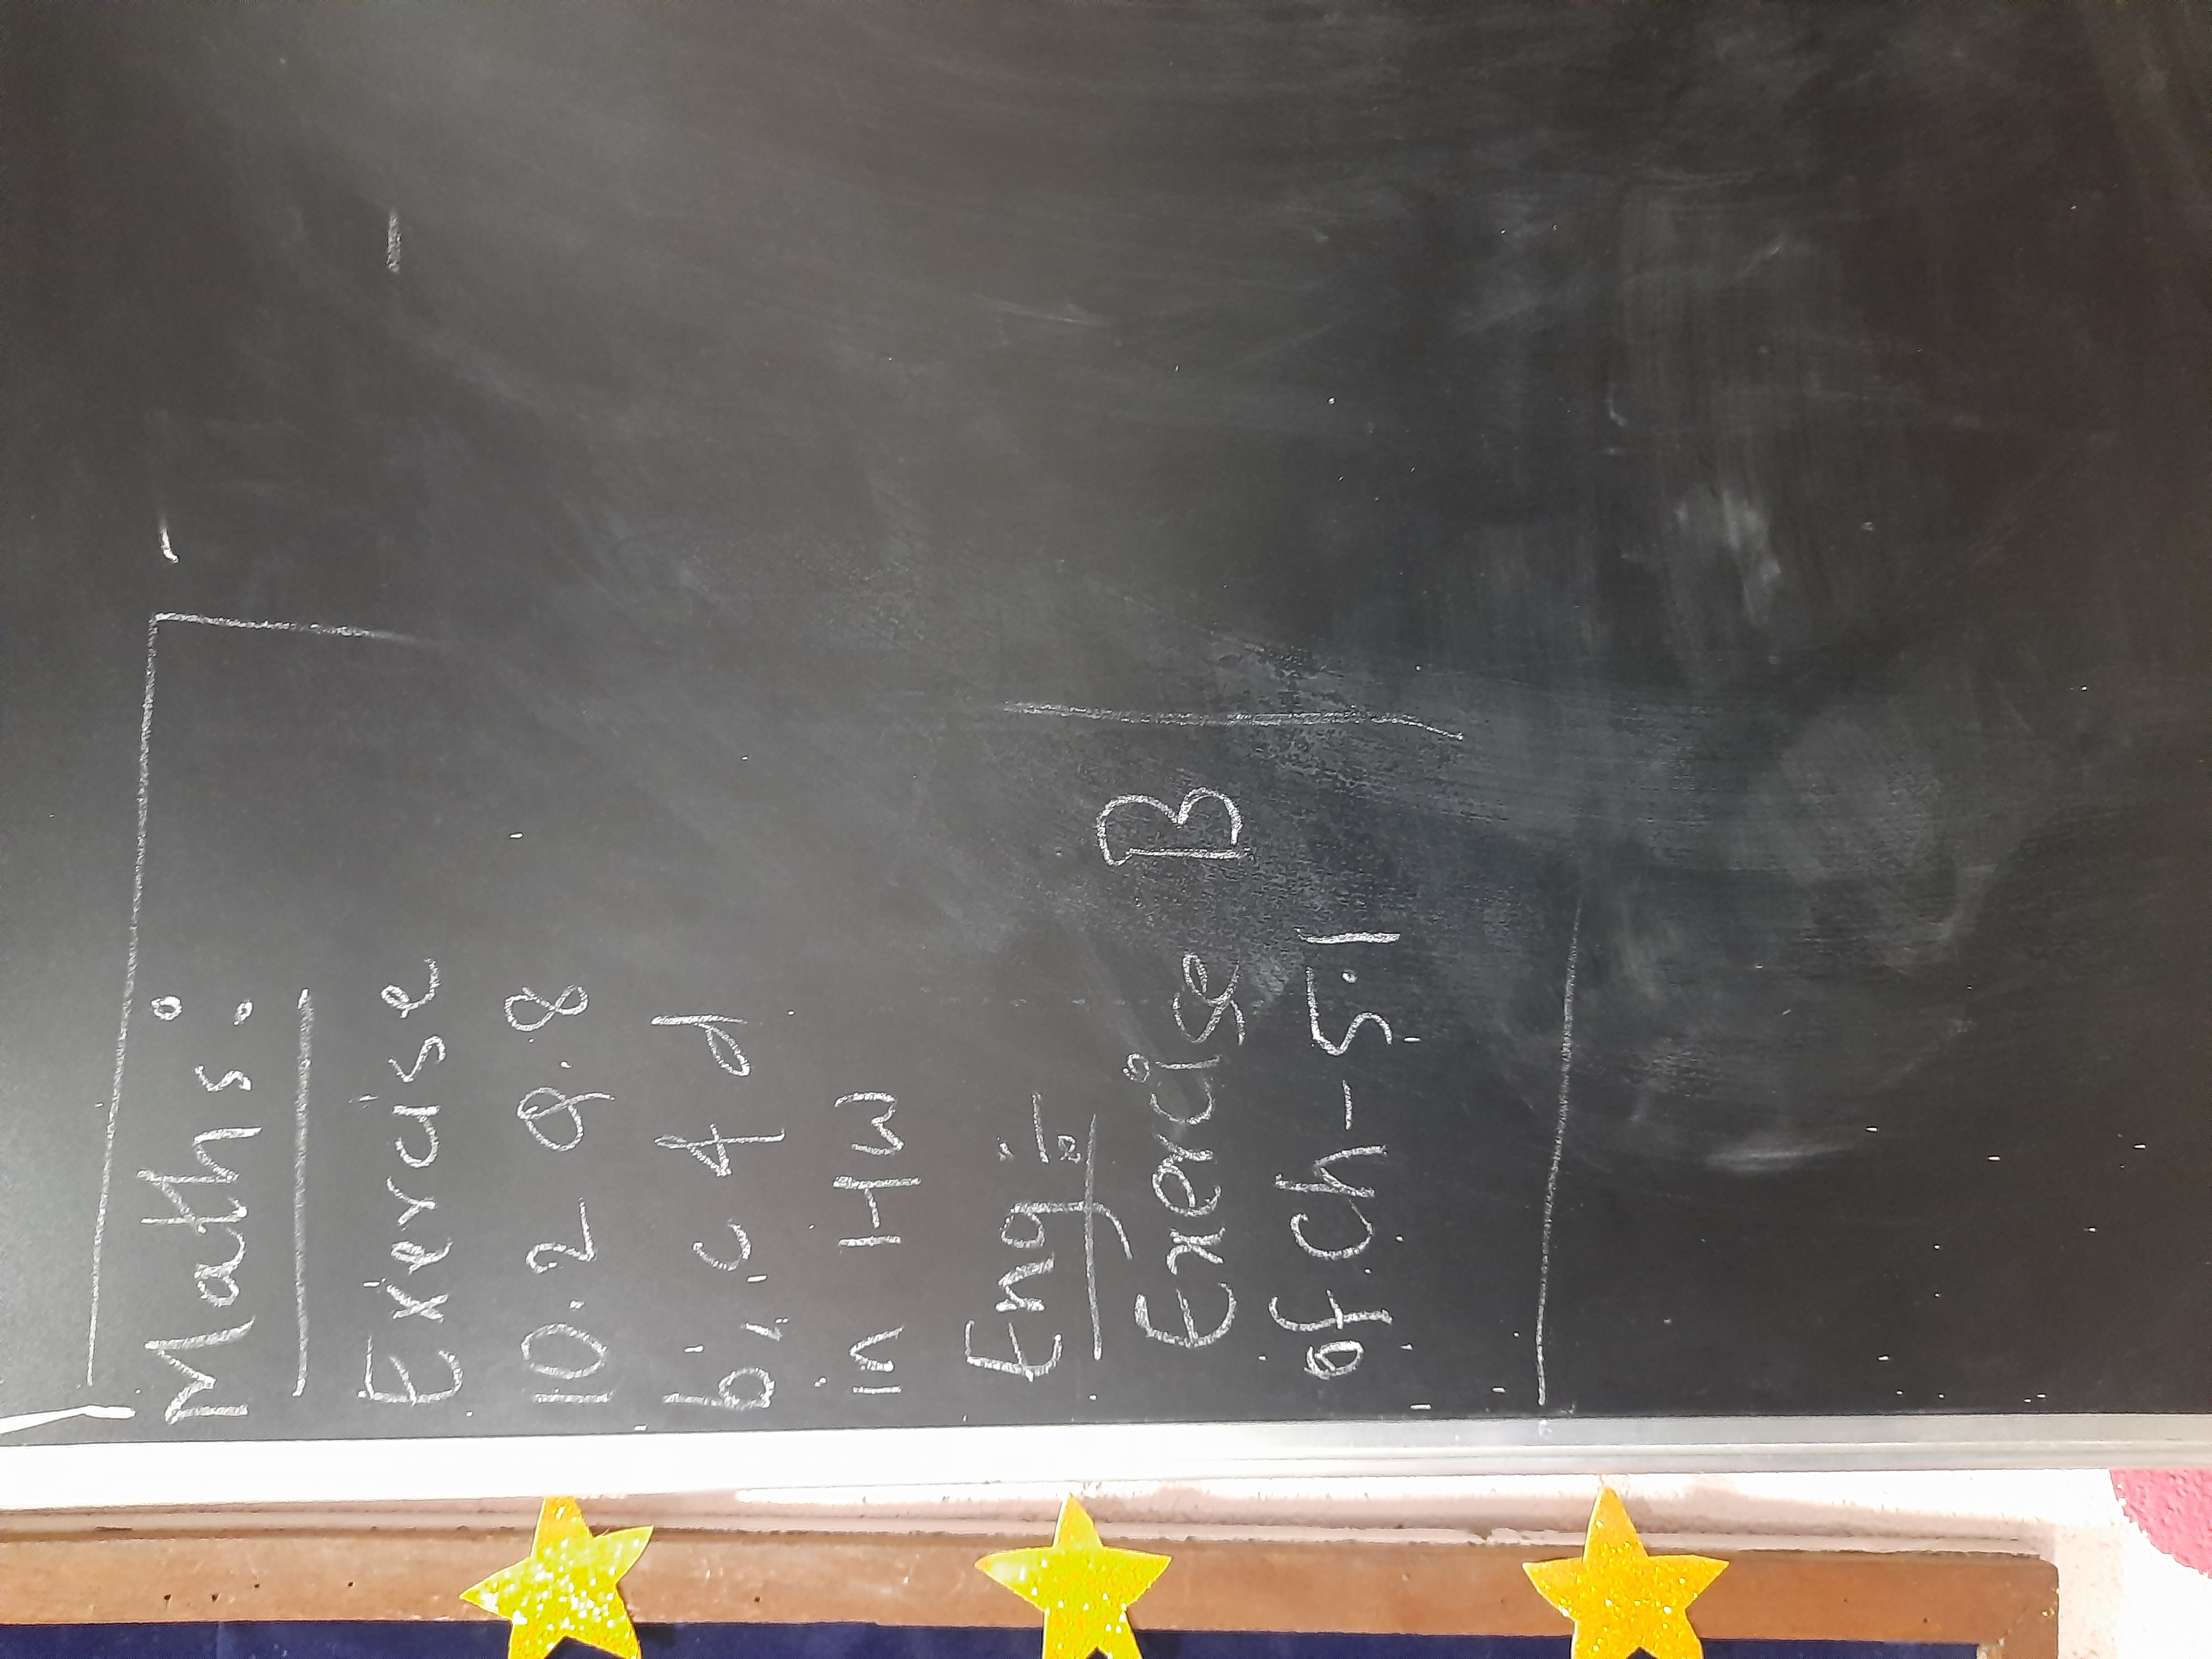 Maths:
Exercise
10.2 Q.8
b, c & d
in HW
Eng:-
Exercise B
of Ch-5.1